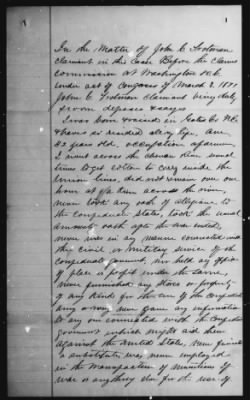 1
In the Matter of John C. Trotman
claimant in the Case Before the Claims
Commission at Washington D.C.
under act of Congress of March 3, 1871
John C. Trotman claimant being duly
sworn deposes & says
I was born & raised in Gates Co N.C.
& have so resided all my life, am
42 years old, occupation a farmer,
I went across the river
time to get cotton to carry inside the
Union lines, did not remain over one
hour at a time across the river,
never took any oath of allegiance to
the Confederate States, took the usual
amnesty oath after the war ended,
never was in any manner connected with
the civil or military service of the
Confederate government, nor held any office
of place or profit under the same,
never furnished any stores or property
of any kind for the use of the Confederate
army or navy nor gave any information
to any one connected with the Confederate
government which might aid them
against the United States, never furnished
a substitute, was never employed
in the manufacture of munitions of
war or anything else for the use of